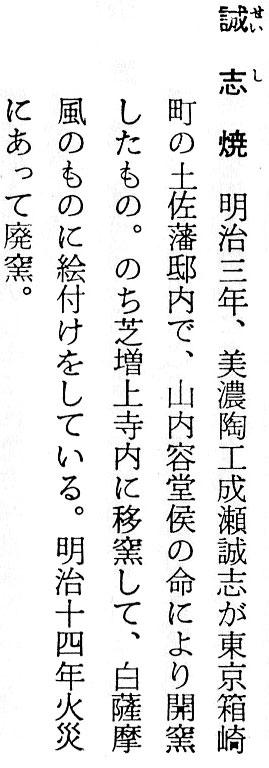 誠志焼 明治三年、美濃陶工成瀬誠志が東京箱崎
町の土佐藩邸内で、山内容堂侯の命により開窯
したもの。のち芝増上寺内に移窯して、白薩摩
風のものに絵付けをしている。明治十四年火災
にあって廃窯。
せいし